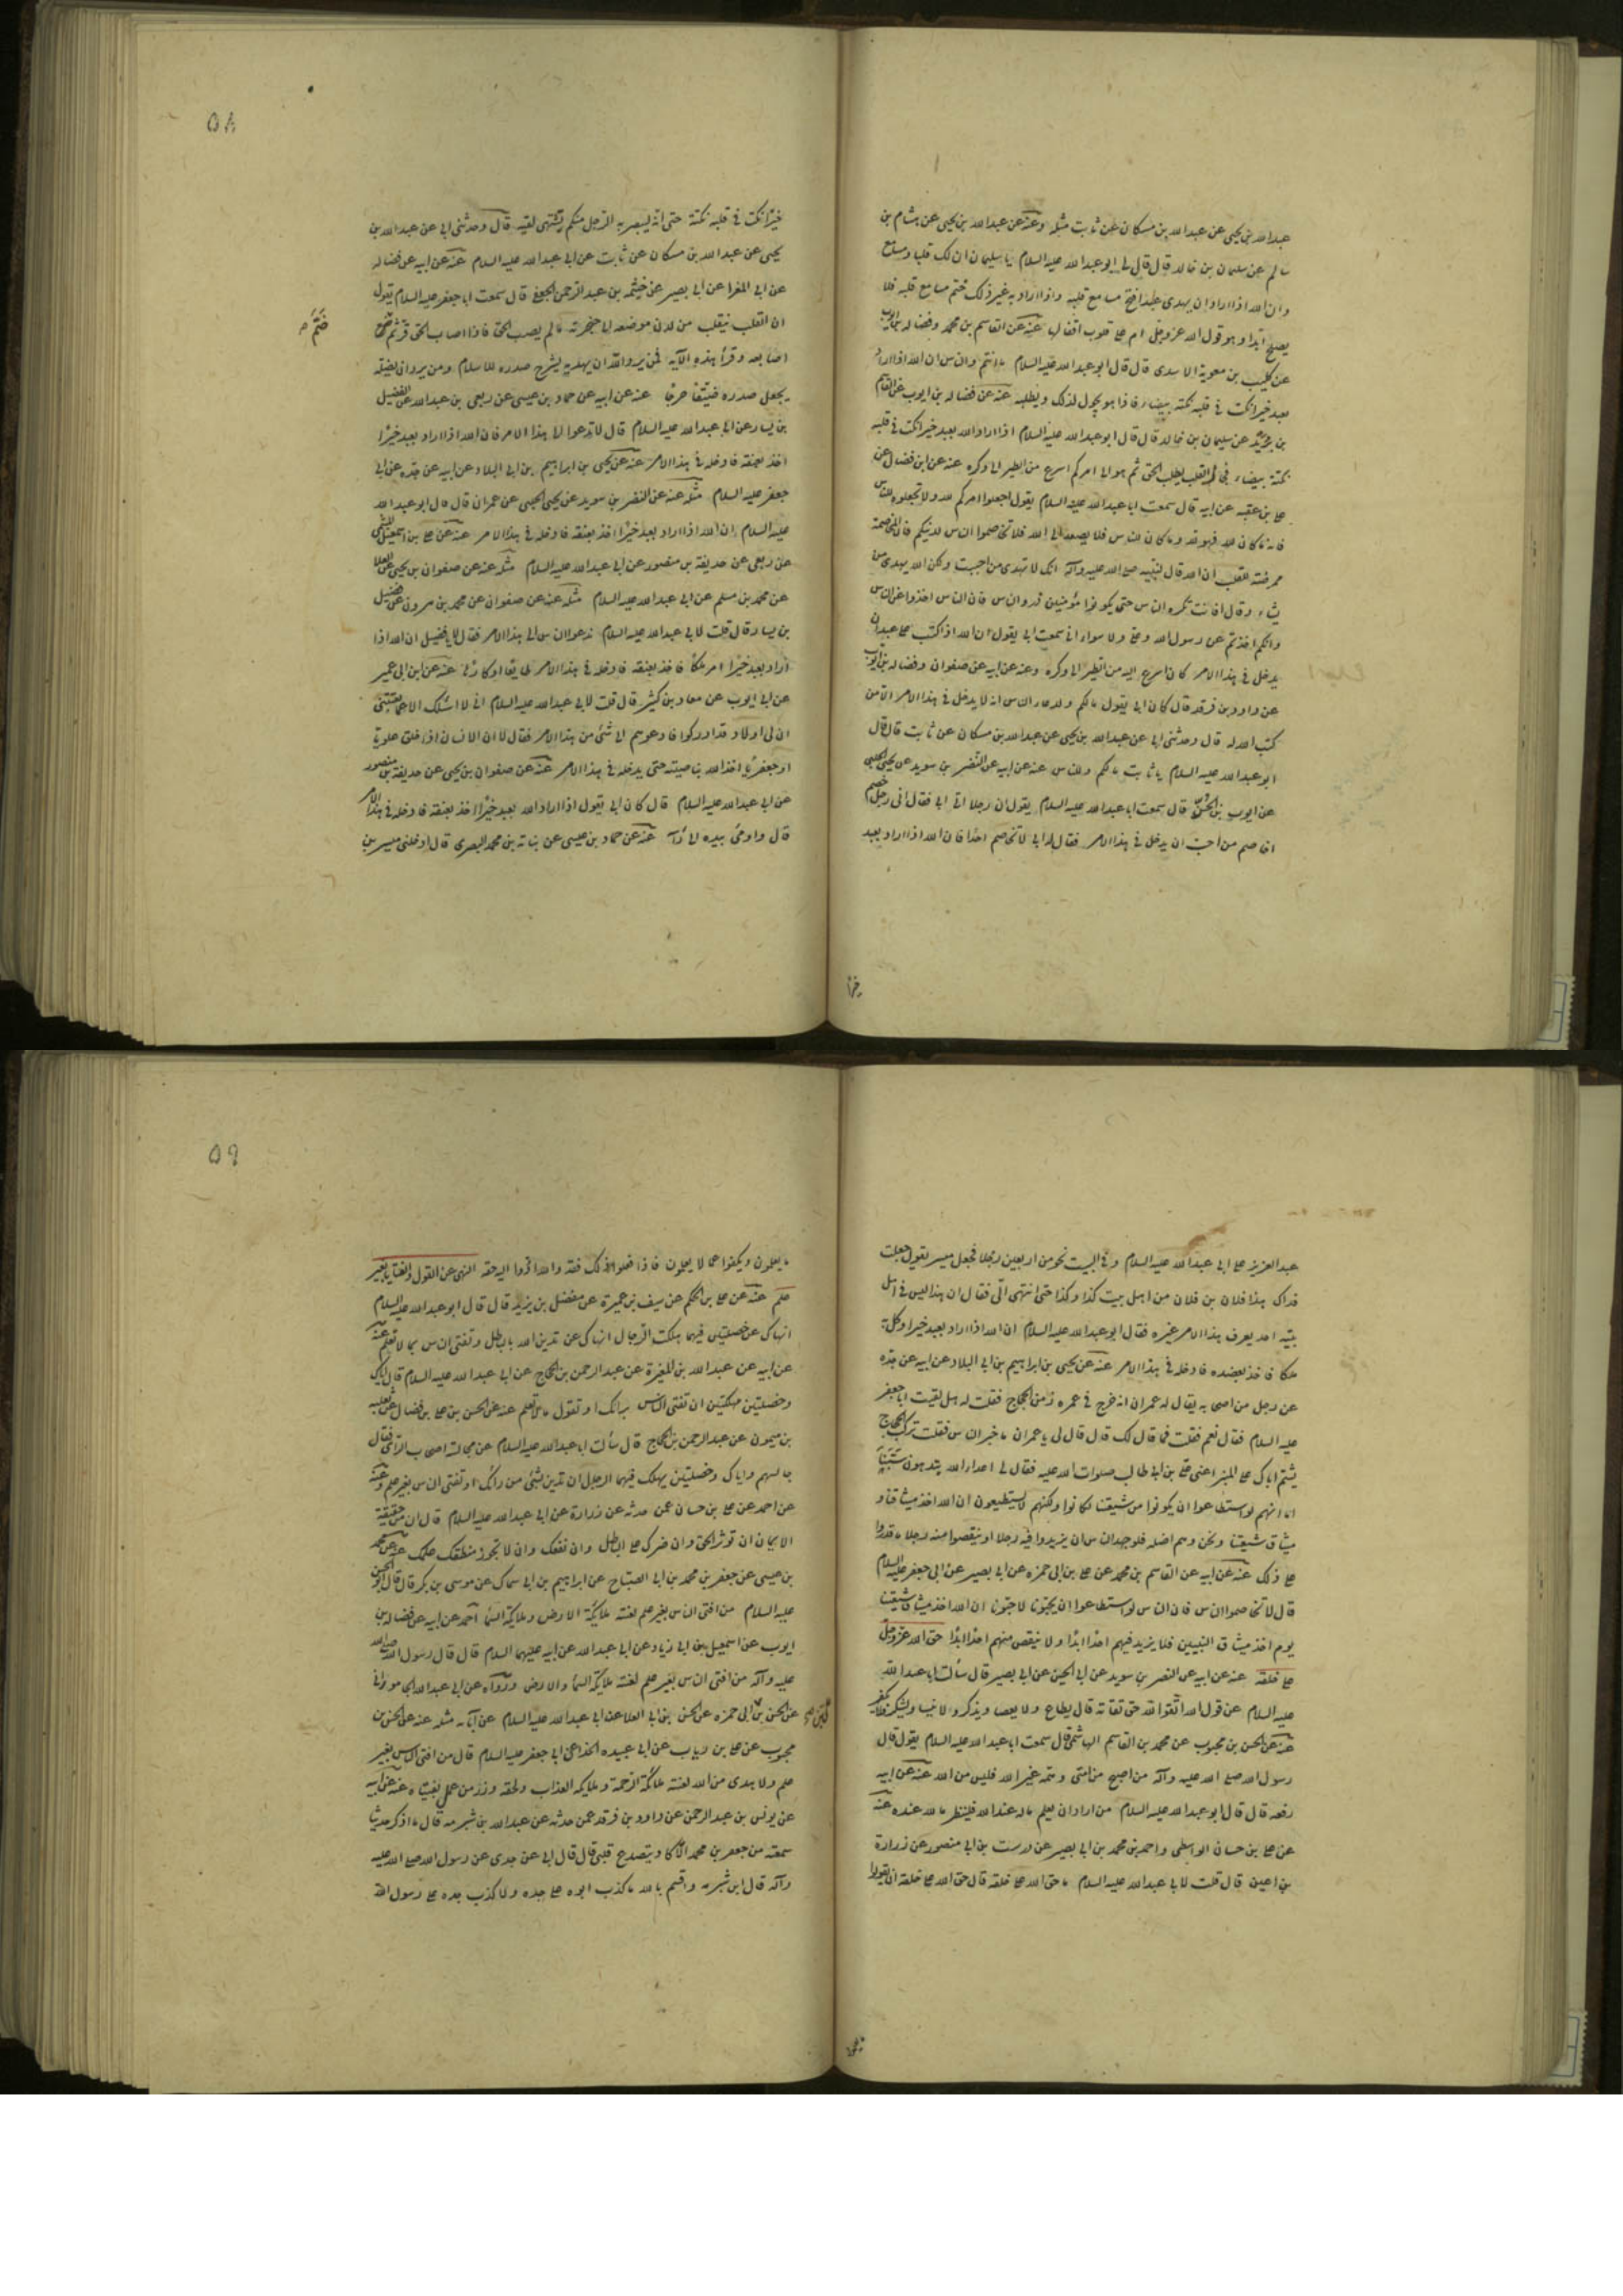 عبدالله بن يحيى عن عبدالله بن مسكان عن ثابت مثله وعنه عن عبدالله بن يحيى عن هشام بن
سالم عن سليمان بن خالد قال قال لى ابوعبدالله عليه السلام يا سليمان ان لك قلبا ومسامع
وان الله اذا اراد ان يهدى عبدا فتح مسامع قلبه واذا اراد به غير ذلك ختم مسامع قلبه فلا
يصلح ابدا وهو قول الله عزوجل ام على قلوب اقفالها عنه عن القاسم بن محمد وفضاله بن ايوب
عن كليب بن معوية الاسدى قال قال ابوعبدالله عليه السلام ما انتم والناس ان الله اذا اراد
بعبد خيرا نكت فى قلبه نكتة بيضاء فاذا هو يجول لذلك ويطلبه عنه عن فضاله بن ايوب عن القاسم
بن بريد عن سليمان بن خالد قال قال ابوعبدالله عليه السلام اذا اراد الله بعبد خيرا نكت فى قلبه
نكتة بيضاء فجال القلب يطلب الحق ثم هو الى امركم اسرع من الطير الى وكره عنه عن ابن فضال عن
على بن عقبه عن ابيه قال سمعت ابا عبدالله عليه السلام يقول اجعلوا امركم لله ولا تجعلوه للناس
فانه ما كان لله فهو لله وما كان للناس فلا يصعد الى الله فلا تخاصموا الناس لدينكم فان المخاصمة
ممرضة للقلب ان الله قال لنبيه صلى الله عليه وآله انك لا تهدى من احببت ولكن الله يهدى من
يشاء وقال افانت تكره الناس حتى يكونوا مؤمنين ذروا الناس فان الناس اخذوا عن الناس
وانكم اخذتم عن رسول الله وعلى ولا سواء انى سمعت ابى يقول ان الله اذا كتب على عبد ان
يدخل فى هذا الامر كان اسرع اليه من الطير الى وكره وعنه عن ابيه عن صفوان وفضاله بن ايوب
عن داود بن فرقد قال كان ابى يقول مالكم ولدعاء الناس انه لا يدخل فى هذا الامر الا من
كتب الله له قال وحدثنى ابى عن عبدالله بن يحيى عن عبدالله بن مسكان عن ثابت قال قال
ابوعبدالله عليه السلام يا ثابت مالكم وللناس عنه عن ابيه عن النضر بن سويد عن يحيى الحلبى
عن ايوب بن الحر قال سمعت ابا عبدالله عليه السلام يقول ان رجلا اتى ابى فقال انى رجل خصم
اخاصم من احب ان يدخل فى هذا الامر فقال له ابى لا تخاصم احدا فان الله اذا اراد بعبد
خيرا
٥٨
خيرا نكت فى قلبه نكتة حتى انه ليبصر به الرجل منكم يشتهى لقيه قال وحدثنى ابى عن عبدالله بن
يحيى عن عبدالله بن مسكان عن ثابت عن ابى عبدالله عليه السلام عنه عن ابيه عن فضاله
عن ابى المغرا عن ابى بصير عن خيثمه بن عبدالرحمن الجعفى قال سمعت ابا جعفر عليه السلام يقول
ان القلب ينقلب من لدن موضعه الى حنجرته ما لم يصب الحق فاذا اصاب الحق قر ثم ضم
ضَمَّ
اصابعه وقرأ هذه الآيه فمن يرد الله ان يهديه يشرح صدره للاسلام ومن يرد ان يضله
يجعل صدره ضيقا حرجا عنه عن ابيه عن حماد بن عيسى عن ربعى بن عبدالله عن الفضيل
بن يسار عن ابى عبدالله عليه السلام قال لا تدعوا الى هذا الامر فان الله اذا اراد بعبد خيرا
اخذ بعنقه فادخله فى هذا الامر عنه عن يحيى بن ابراهيم بن ابى البلاد عن ابيه عن جده عن ابى
جعفر عليه السلام مثله عنه عن النضر بن سويد عن يحيى الحلبى عن عمران قال قال ابوعبدالله
عليه السلام ان الله اذا اراد بعبد خيرا اخذ بعنقه فادخله فى هذا الامر عنه عن على بن اسمعيل الميثمى
عن ربعى عن حذيفة بن منصور عن ابى عبدالله عليه السلام مثله عنه عن صفوان بن يحيى عن العلا
عن محمد بن مسلم عن ابى عبدالله عليه السلام مثله عنه عن صفوان عن محمد بن مرون عن فضيل
بن يسار قال قلت لابى عبدالله عليه السلام ندعوا الناس الى هذا الامر فقال لا يا فضيل ان الله اذا
اراد بعبد خيرا امر ملكا فاخذ بعنقه فادخله فى هذا الامر طايعا او كارها عنه عن ابن ابى عمير
عن ابى ايوب عن معاذ بن كثير قال قلت لابى عبدالله عليه السلام انى لا اسئلك الا عما يعنينى
ان لى اولادا قد ادركوا فادعوهم الى شئ من هذا الامر فقال لا ان الانسان اذا خلق علويا
او جعفريا اخذ الله بناصيته حتى يدخله فى هذا الامر عنه عن صفوان بن يحيى عن حذيفة بن منصور
عن ابى عبدالله عليه السلام قال كان ابى يقول اذا اراد الله بعبد خيرا اخذ بعنقه فادخله فى هذا الامر
قال واومئ بيده الى رأسه عنه عن حماد بن عيسى عن نباته بن محمد البصرى قال ادخلنى ميسر بن
عبدالعزيز على ابى عبدالله عليه السلام وفى البيت نحو من اربعين رجلا فجعل ميسر يقول جعلت
فداك هذا فلان بن فلان من اهل بيت كذا وكذا حتى انتهى الى فقال ان هذا ليس فى اهل
بيته احد يعرف هذا الامر غيره فقال ابوعبدالله عليه السلام ان الله اذا اراد بعبد خيرا وكل به
ملكا فاخذ بعضده فادخله فى هذا الامر عنه عن يحيى بن ابراهيم بن ابى البلاد عن ابيه عن جده
عن رجل من اصحابه يقال له عمران انه خرج فى عمره زمن الحجاج فقلت له هل لقيت ابا جعفر
عليه السلام فقال نعم فقلت فما قال لك قال قال لى يا عمران ما خبر الناس فقلت تركت الحجاج
يشتم اباك على المنبر اعنى على بن ابى طالب صلوات الله عليه فقال لى اعداء الله يبدهون سبنا
اما انهم لو استطاعوا ان يكونوا من شيعتنا لكانوا ولكنهم لا يستطيعون ان الله اخذ ميثاقنا و
ميثاق شيعتنا ونحن وهم اضله فلو جهد الناس ان يزيدوا فيه رجلا او ينقصوا منه رجلا ما قدروا
على ذلك عنه عن ابيه عن القاسم بن محمد عن على بن ابى حمزه عن ابى بصير عن ابى جعفر عليه السلام
قال لا تخاصموا الناس فان الناس لو استطاعوا ان يحبونا لاحبونا ان الله اخذ ميثاق شيعتنا
يوم اخذ ميثاق النبيين فلا يزيد فيهم احدا ابدا ولا ينقص منهم احدا ابدا حق الله عزوجل
على خلقه عنه عن ابيه عن النضر بن سويد عن ابى الحسن عن ابى بصير قال سألت ابا عبدالله
عليه السلام عن قول الله اتقوا الله حق تقاته قال يطاع ولا يعصا ويذكر ولا ينسا ويشكر فلا يكفر
عنه عن الحسن بن محبوب عن محمد بن القاسم الهاشمى قال سمعت ابا عبدالله عليه السلام يقول قال
رسول الله صلى الله عليه وآله من اصبح من امتى وهمه غير الله فليس من الله عنه عن ابيه
رفعه قال قال ابوعبدالله عليه السلام من اراد ان يعلم ماله عند الله فلينظر ما لله عنده عنه
عن على بن حسان الواسطى واحمد بن محمد بن ابى بصير عن درست بن ابى منصور عن زرارة
بن اعين قال قلت لابى عبدالله عليه السلام ما حق الله على خلقه قال حق الله على خلقه ان يقولوا
٥٩
ما يعلمون ويكفوا عما لا يعلمون فاذا فعلوا ذلك فقد والله ادوا اليه حقه النهى عن القول والفتيا بغير
علم عنه عن على بن الحكم عن سيف بن عميرة عن مفضل بن يزيد قال قال ابوعبدالله عليه السلام
انهاك عن خصلتين فيهما هلكت الرجال انهاك عن تدين الله بالباطل وتفتى الناس بما لا تعلم عنه
عن ابيه عن عبدالله بن المغيرة عن عبدالرحمن بن الحجاج عن ابى عبدالله عليه السلام قال اياك
وخصلتين مهلكتين ان تفتى الناس برايك او تقول ما لا تعلم عنه عن الحسن بن على بن فضال عن ثعلبه
بن ميمون عن عبدالرحمن بن الحجاج قال سألت ابا عبدالله عليه السلام عن مجالسة اصحاب الراى فقال
جالسهم واياك وخصلتين يهلك فيهما الرجال ان تدين بشئ من رايك او تفتى الناس بغير علم وعنه
عن احمد عن على بن حسان عمن حدثه عن زرارة عن ابى عبدالله عليه السلام قال ان من حقيقة
الايمان ان توثر الحق وان ضرك على الباطل وان نفعك وان لا تجوز منطقك علمك عنه عن محمد
بن عيسى عن جعفر بن محمد بن ابى الصباح عن ابراهيم بن ابى سماك عن موسى بن بكر قال قال ابو الحسن
عليه السلام من افتى الناس بغير علم لعنته ملائكة الارض وملائكة السما احمد عن ابيه عن فضاله بن
ايوب عن اسمعيل بن ابى زياد عن ابى عبدالله عن ابيه عليهما السلام قال قال رسول الله صلى الله
عليه وآله من افتى الناس بغير علم لعنته ملائكة السما والارض ورواه عن ابى عبدالله الجامورانى
عن الحسن بن على بن ابى حمزه عن الحسن بن ابى العلا عن ابى عبدالله عليه السلام عن آبائه مثله عنه عن الحسن بن
محبوب عن على بن رياب عن ابى عبيده الحذا عن ابى جعفر عليه السلام قال من افتى الناس بغير
علم ولا هدى من الله لعنته ملائكة الرحمة وملائكة العذاب ولحقه وزر من عمل بفتياه عنه عن ابيه
عن يونس بن عبدالرحمن عن داود بن فرقد عمن حدثه عن عبدالله بن شبرمه قال ما اذكر حديثا
سمعته من جعفر بن محمد الا كاد يتصدع قلبى قال قال ابى عن جدى عن رسول الله صلى الله عليه
وآله قال ابن شبرمه واقسم بالله ما كذب ابوه على جده ولا كذب جده على رسول الله